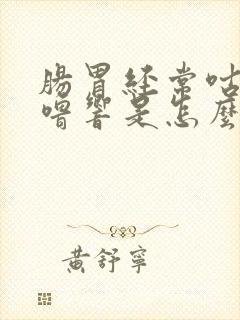 腸胃經常咕
噜響是怎麼
黃舒寧